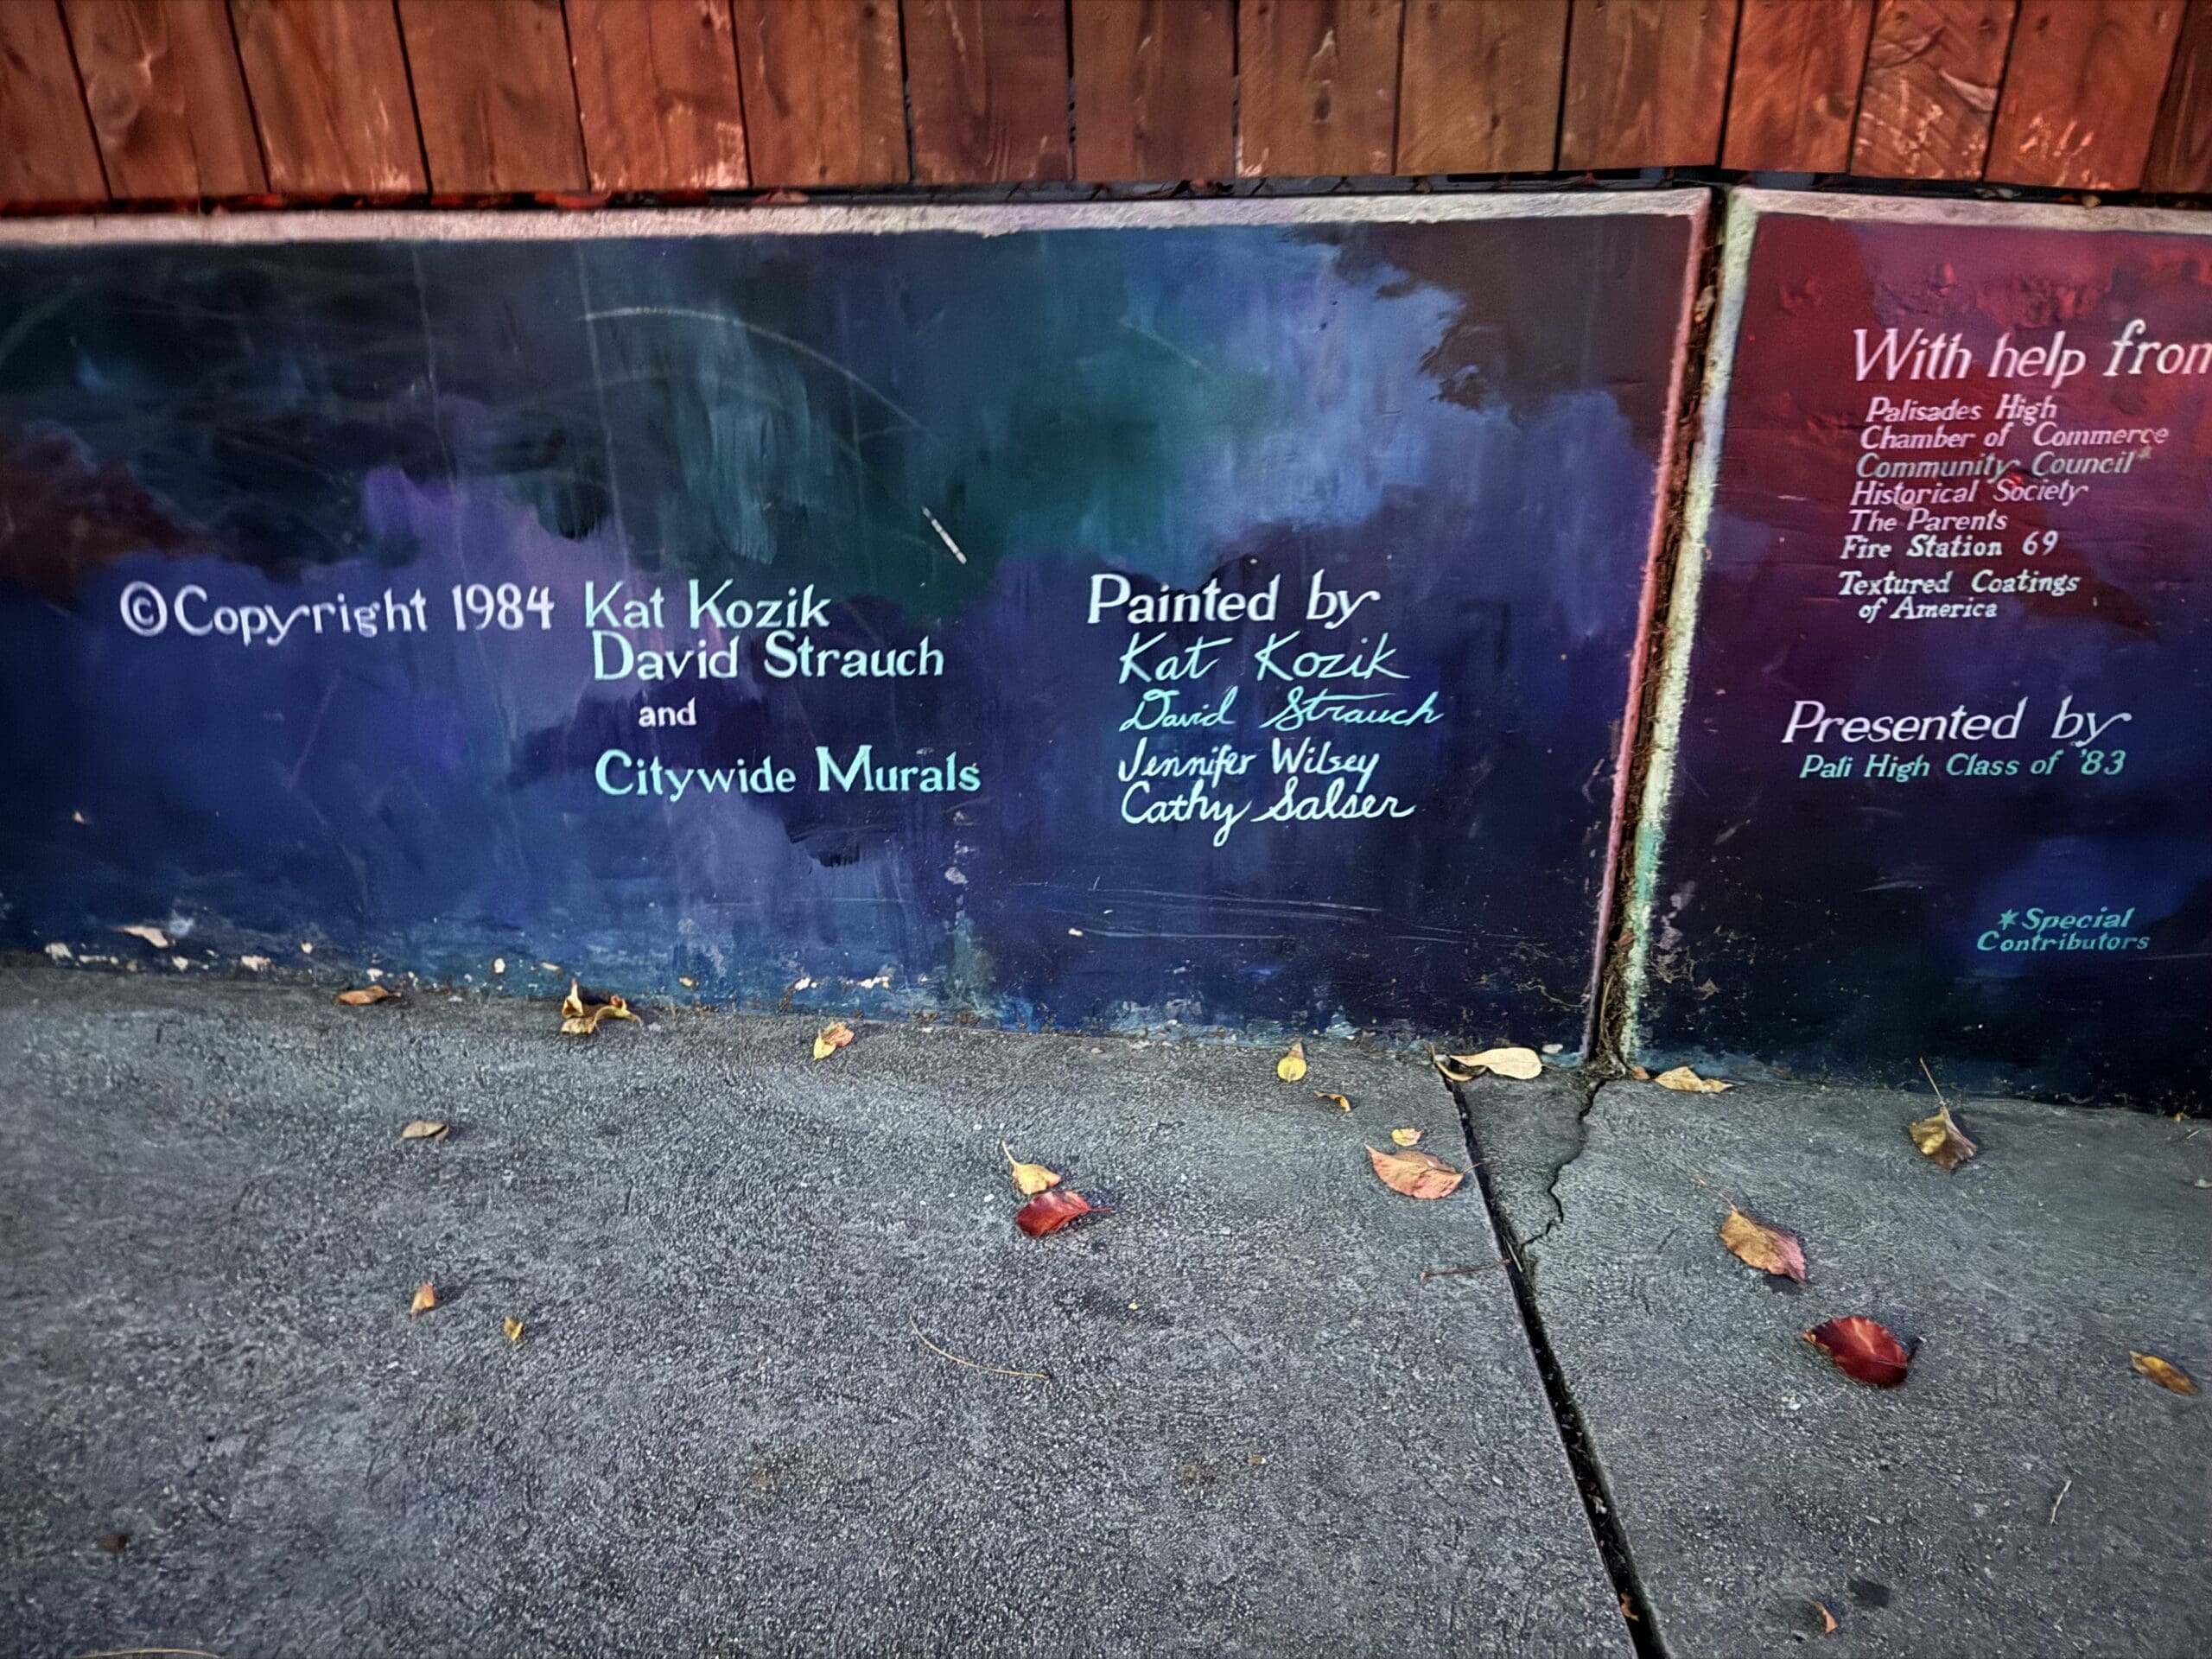 ©Copyright 1984 Kat Kozik
David Strauch
and
Citywide Murals
Painted by
Kat Kozik
David Strauch
Jennifer Wilsey
Cathy Salser
With help from
Palisades High
Chamber of Commerce
Community Council*
Historical Society
The Parents
Fire Station 69
Textured Coatings
of America
Presented by
Pali High Class of '83
*Special
Contributors